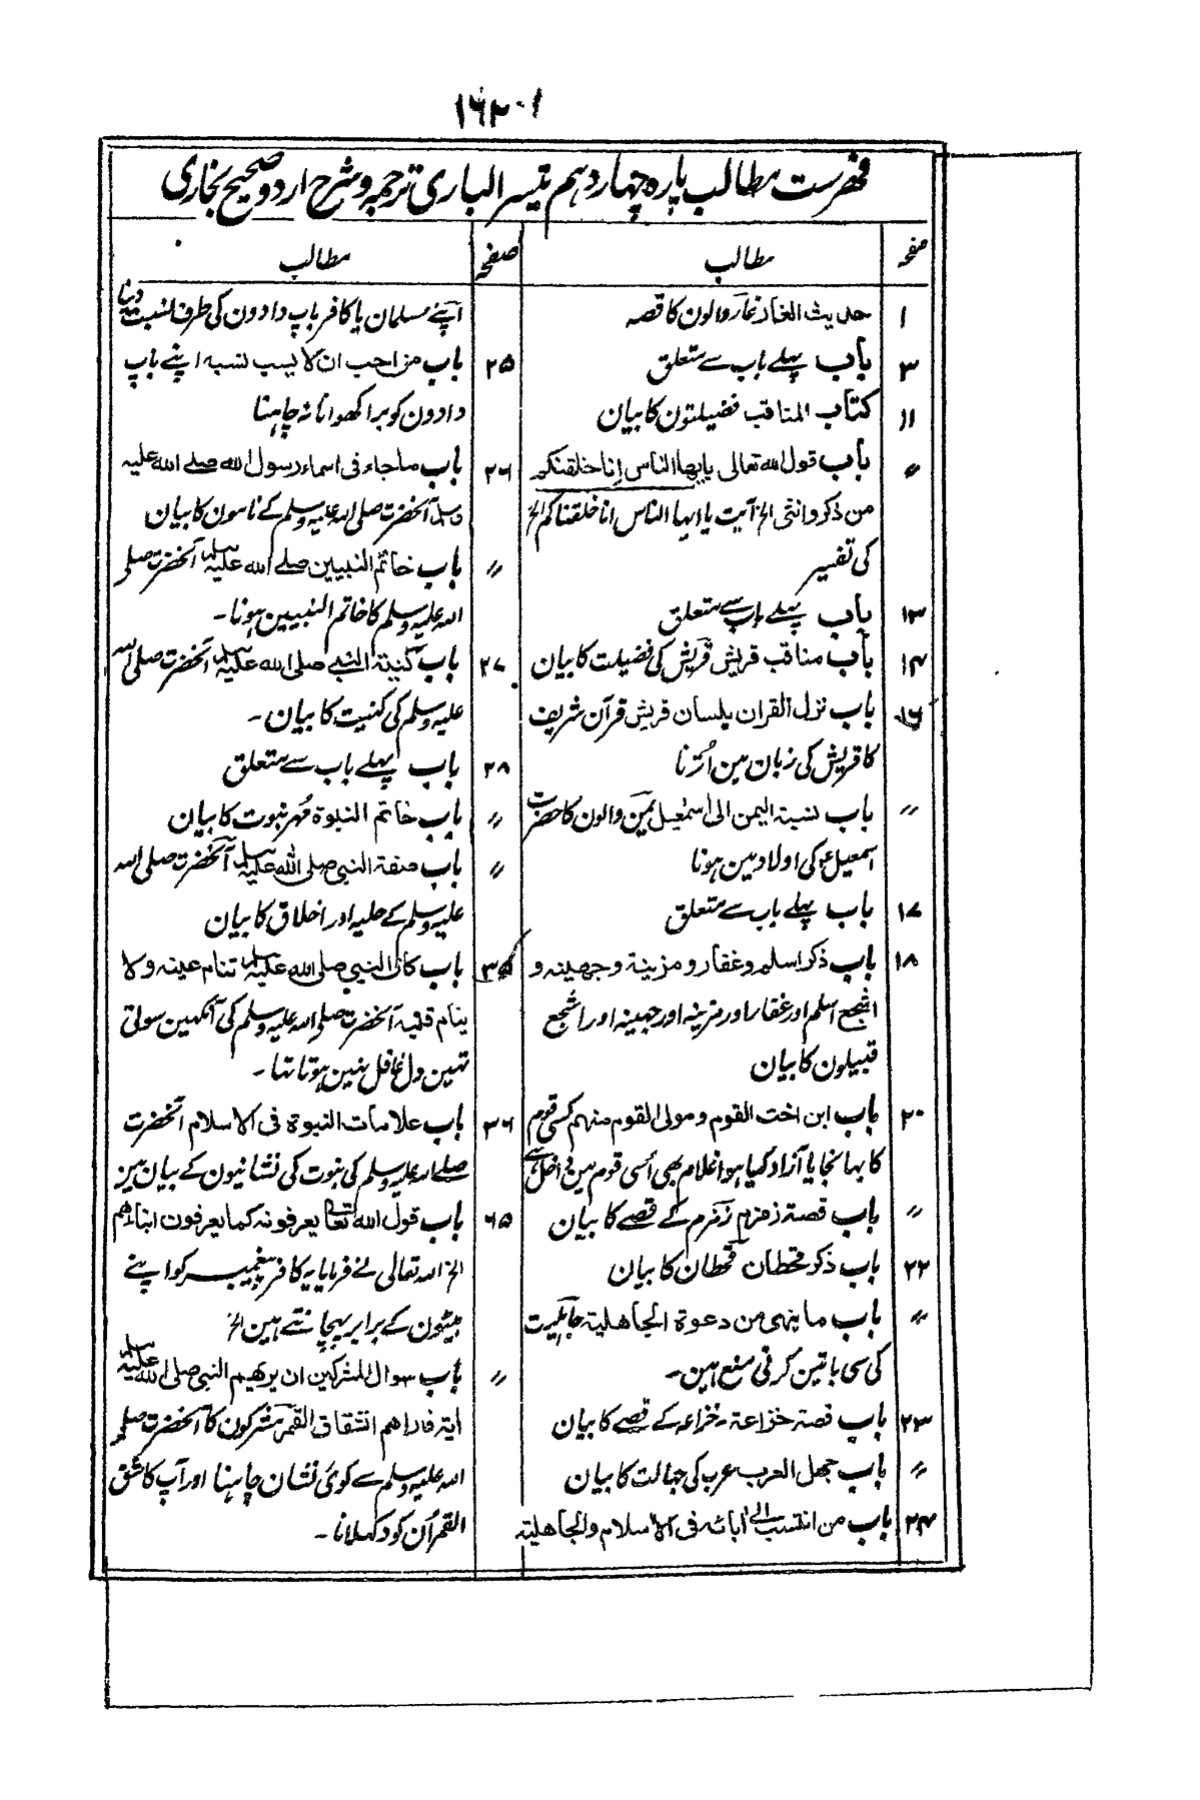 ۱۶۲۰۱
فہرست مطالب پارہ چہاردہم تیسیر الباری ترجمہ و شرح اردو صحیح بخاری
صفحہ مطالب
۱ حدیث الغار غار والون کا قصہ
۳ باب پہلے باب سے متعلق
۱۱ کتاب المناقب فضیلتون کا بیان
〃 باب قول اللہ تعالی یایھا الناس انا خلقنکم
من ذکر وانثی الخ آیت یا ایہا الناس انا خلقناکم الخ
کی تفسیر
۱۳ باب پہلے باب سے متعلق
۱۴ باب مناقب قریش قریش کی فضیلت کا بیان
۱۶ باب نزل القران بلسان قریش قرآن شریف
کا قریش کی زبان مین اُترنا
〃 باب نسبۃ الیمن الی اسمٰعیل یمن والون کا حضرت
اسمعیل ؑ کی اولاد مین ہونا
۱۷ باب پہلے باب سے متعلق
۱۸ باب ذکر اسلم وغفار ومزینۃ وجھینہ و
اشجع اسلم اور غفار اور مزینہ اور جہینہ اور اشجع
قبیلون کا بیان
۲۰ باب ابن اخت القوم ومولی القوم منہم کسی قوم
کا بہانجا یا آزاد کیا ہوا غلام بھی اُسی قوم مین داخل ہے
〃 باب قصۃ زمزم زمزم کے قصے کا بیان
۲۲ باب ذکر قحطان قحطان کا بیان
〃 باب ما ینہی من دعوۃ الجاھلیۃ جاہلیت
کی سی باتین کرنی منع ہین۔
۲۳ باب قصۃ خزاعۃ خزاعہ کے قصے کا بیان
〃 باب جھل العرب عرب کی جہالت کا بیان
۲۴ باب من انتسب الی اٰبائہ فی الاسلام والجاھلیۃ
صفحہ مطالب
اپنے مسلمان یا کافر باپ دادون کی طرف نسبت دینا
۲۵ باب من احب ان لا یسب نسبہ اپنے باپ
دادون کو برا کھوانا نہ چاہنا
۲۶ باب ما جاء فی اسماء رسول اللہ صلے اللہ علیہ
وسلم آنحضرت صلی اللہ علیہ وسلم کے نامون کا بیان
〃 باب خاتم النبیین صلے اللہ علیہ وسلم آنحضرت صلی
اللہ علیہ وسلم کا خاتم النبیین ہونا۔
۲۷ باب کنیۃ النبی صلی اللہ علیہ وسلم آنحضرت صلی اللہ
علیہ وسلم کی کنیت کا بیان۔
۲۸ باب پہلے باب سے متعلق
〃 باب خاتم النبوۃ مُہر نبوت کا بیان
〃 باب صفۃ النبی صلی اللہ علیہ وسلم آنحضرت صلی اللہ
علیہ وسلم کے حلیہ اور اخلاق کا بیان
۳۵ باب کان النبی صلی اللہ علیہ وسلم تنام عینہ ولا
ینام قلبہ آنحضرت صلی اللہ علیہ وسلم کی آنکہین سوتی
تہین دل غافل نہین ہوتا تہا۔
۳۶ باب علامات النبوۃ فی الاسلام آنحضرت
صلے اللہ علیہ وسلم کی نبوت کی نشانیون کے بیان مین
۶۵ باب قول اللہ تعالٰی یعرفونہ کما یعرفون ابناءھم
الخ اللہ تعالی نے فرمایا یہ کافر پیغمبر کو اپنے
بیٹون کے برابر پہچانتے ہین الخ
〃 باب سوال المشرکین ان یریھم النبی صلی اللہ علیہ وسلم
ایۃ فاراھم انشقاق القمر مشرکون کا آنحضرت صلی
اللہ علیہ وسلم سے کوئی نشان چاہنا اور آپ کا شق
القمر اُن کو دکہلانا۔